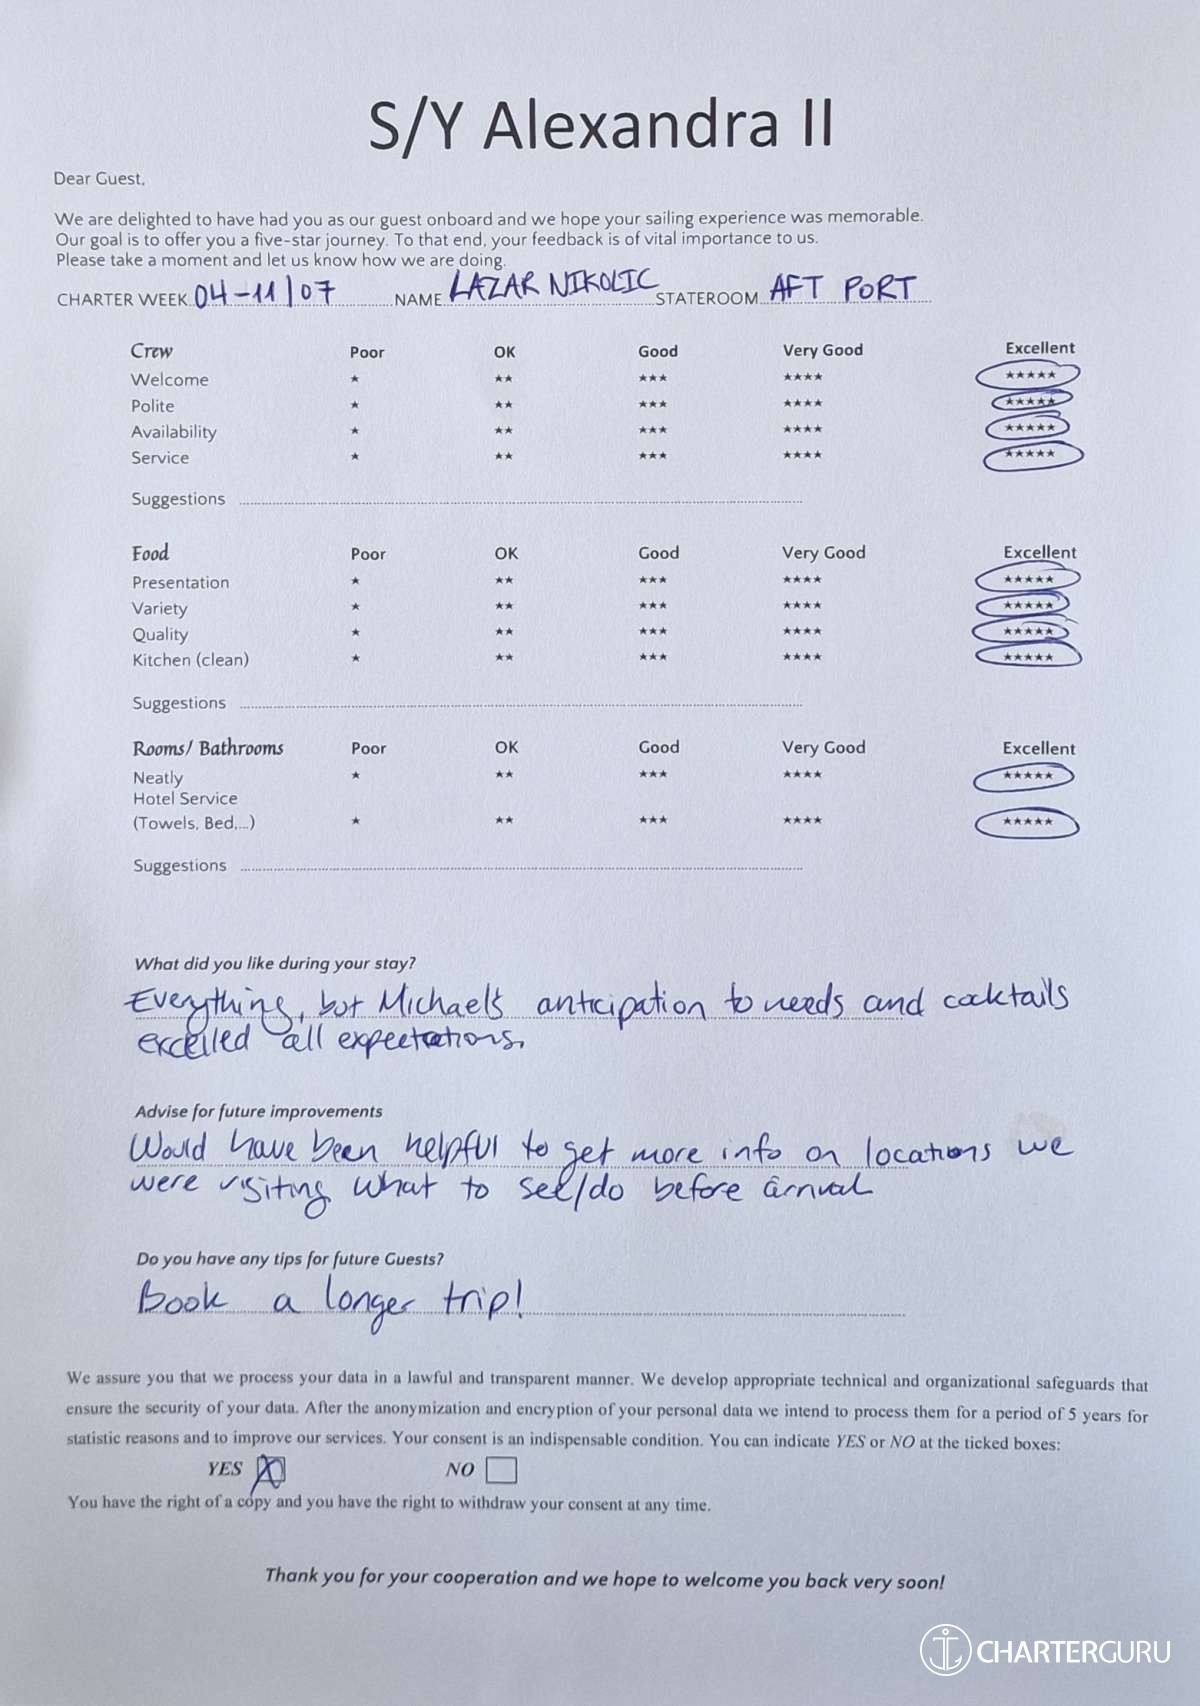 S/Y Alexandra II
Dear Guest,
We are delighted to have had you as our guest onboard and we hope your sailing experience was memorable.
Our goal is to offer you a five-star journey. To that end, your feedback is of vital importance to us.
Please take a moment and let us know how we are doing.
CHARTER WEEK 04-11/07 NAME LAZAR NIKOLIC STATEROOM AFT PORT
Crew Poor OK Good Very Good Excellent
Welcome ★ ★★ ★★★ ★★★★ ★★★★★
Polite ★ ★★ ★★★ ★★★★ ★★★★★
Availability ★ ★★ ★★★ ★★★★ ★★★★★
Service ★ ★★ ★★★ ★★★★ ★★★★★
Suggestions
Food Poor OK Good Very Good Excellent
Presentation ★ ★★ ★★★ ★★★★ ★★★★★
Variety ★ ★★ ★★★ ★★★★ ★★★★★
Quality ★ ★★ ★★★ ★★★★ ★★★★★
Kitchen (clean) ★ ★★ ★★★ ★★★★ ★★★★★
Suggestions
Rooms/ Bathrooms Poor OK Good Very Good Excellent
Neatly ★ ★★ ★★★ ★★★★ ★★★★★
Hotel Service
(Towels, Bed,...) ★ ★★ ★★★ ★★★★ ★★★★★
Suggestions
What did you like during your stay?
Everything, but Michael's anticipation to needs and cocktails
excelled all expectations.
Advise for future improvements
Would have been helpful to get more info on locations we
were visiting what to see/do before arrival
Do you have any tips for future Guests?
Book a longer trip!
We assure you that we process your data in a lawful and transparent manner. We develop appropriate technical and organizational safeguards that
ensure the security of your data. After the anonymization and encryption of your personal data we intend to process them for a period of 5 years for
statistic reasons and to improve our services. Your consent is an indispensable condition. You can indicate YES or NO at the ticked boxes:
YES X NO
You have the right of a copy and you have the right to withdraw your consent at any time.
Thank you for your cooperation and we hope to welcome you back very soon!
CHARTERGURU